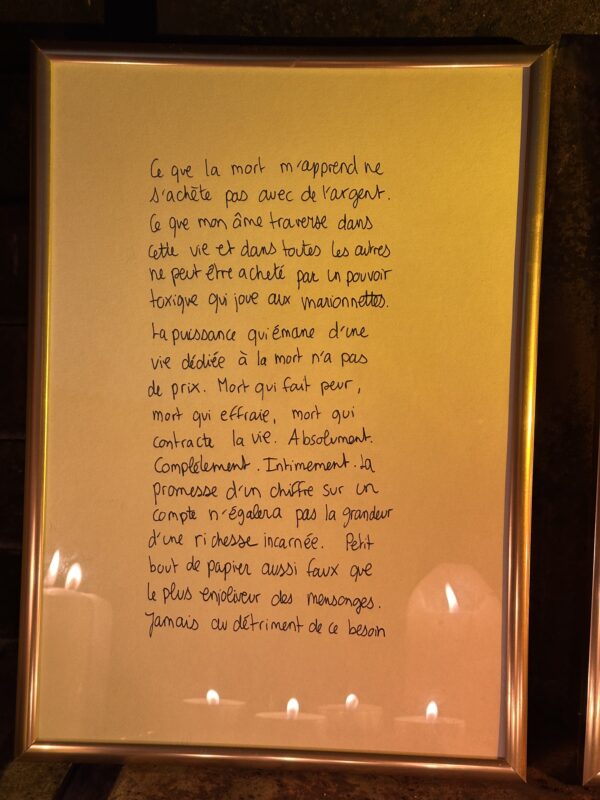 Ce que la mort m'apprend ne
s'achète pas avec de l'argent.
Ce que mon âme traverse dans
cette vie et dans toutes les autres
ne peut être acheté par un pouvoir
toxique qui joue aux marionnettes.
La puissance qui émane d'une
vie dédiée à la mort n'a pas
de prix. Mort qui fait peur,
mort qui effraie, mort qui
contracte la vie. Absolument.
Complètement. Intimement. La
promesse d'un chiffre sur un
compte n'égalera pas la grandeur
d'une richesse incarnée. Petit
bout de papier aussi faux que
le plus enjoliveur des mensonges.
Jamais au détriment de ce besoin